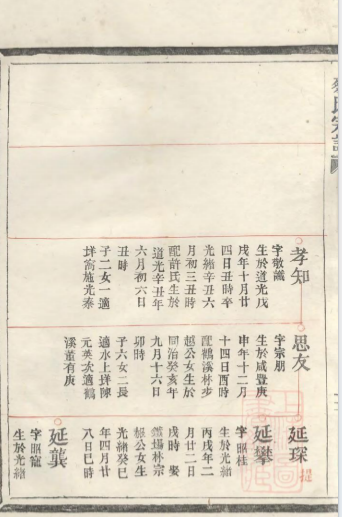 氏宗譜
孝知
字敬識
生於道光戊
戌年十月廿
四日丑時卒
光緒辛丑六
月初三丑時
配許氏生於
道光辛丑年
六月初六日
丑時
子二女一適
施光泰
思友
字宗朋
生於咸豐庚
申年十二月
十四日酉時
配鶴溪林步
越公女生於
同治癸亥年
九月十六日
卯時
子六女二長
適水上垟陳
元英次適鶴
溪董有庚
延琛
延攀
字昭桂
生於光緒
丙戌年二
月廿二日
戌時 娶
場林宗
根公女生
光緒癸巳
年四月廿
八日巳時
延龔
字昭龍
生於光緒